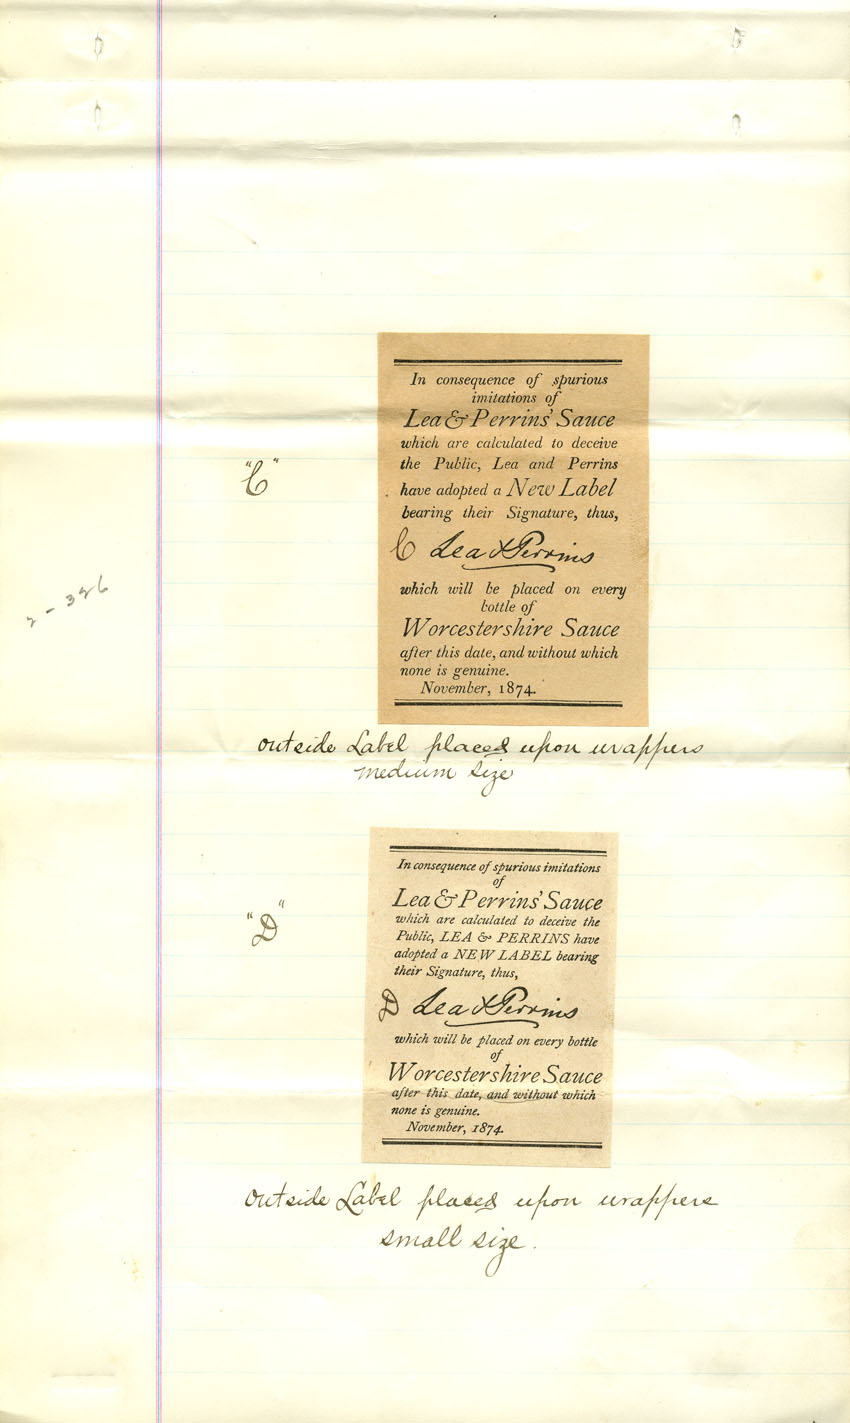 In consequence of spurious
imitations of
Lea & Perrins' Sauce
which are calculated to deceive
the Public, Lea and Perrins
"C"
have adopted a New Label
bearing their Signature, thus,
C Lea & Perrins
which will be placed on every
bottle of
2-326
Worcestershire Sauce
after this date, and without which
none is genuine.
November, 1874.
outside Label placed upon wrappers
medium size
In consequence of spurious imitations
of
Lea & Perrins' Sauce
which are calculated to deceive the
"D"
Public, LEA & PERRINS have
adopted a NEW LABEL bearing
their Signature, thus,
D Lea & Perrins
which will be placed on every bottle
of
Worcestershire Sauce
after this date, and without which
none is genuine.
November, 1874.
outside Label placed upon wrappers
small size.